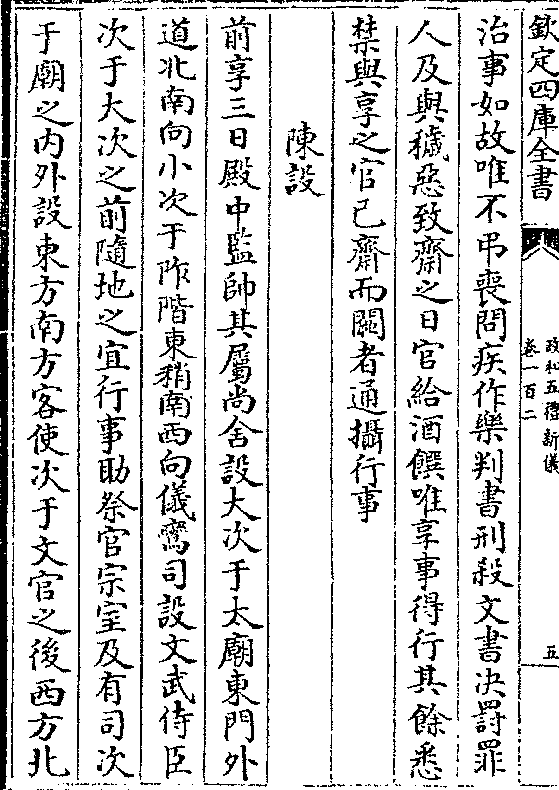 欽定四庫全書
政和五禮新儀
卷一百二
五
治事如故唯不弔喪問疾作樂判書刑殺文書决罰罪
人及與穢惡致齋之日官給酒饌唯享事得行其餘悉
禁與享之官已齋而闕者通攝行事
陳設
前享三日殿中監帥其屬尚舍設大次于太廟東門外
道北南向小次于阼階東稍南西向儀鸞司設文武侍臣
次于大次之前隨地之宜行事助祭官宗室及有司次
于廟之内外設東方南方客使次于文官之後西方北